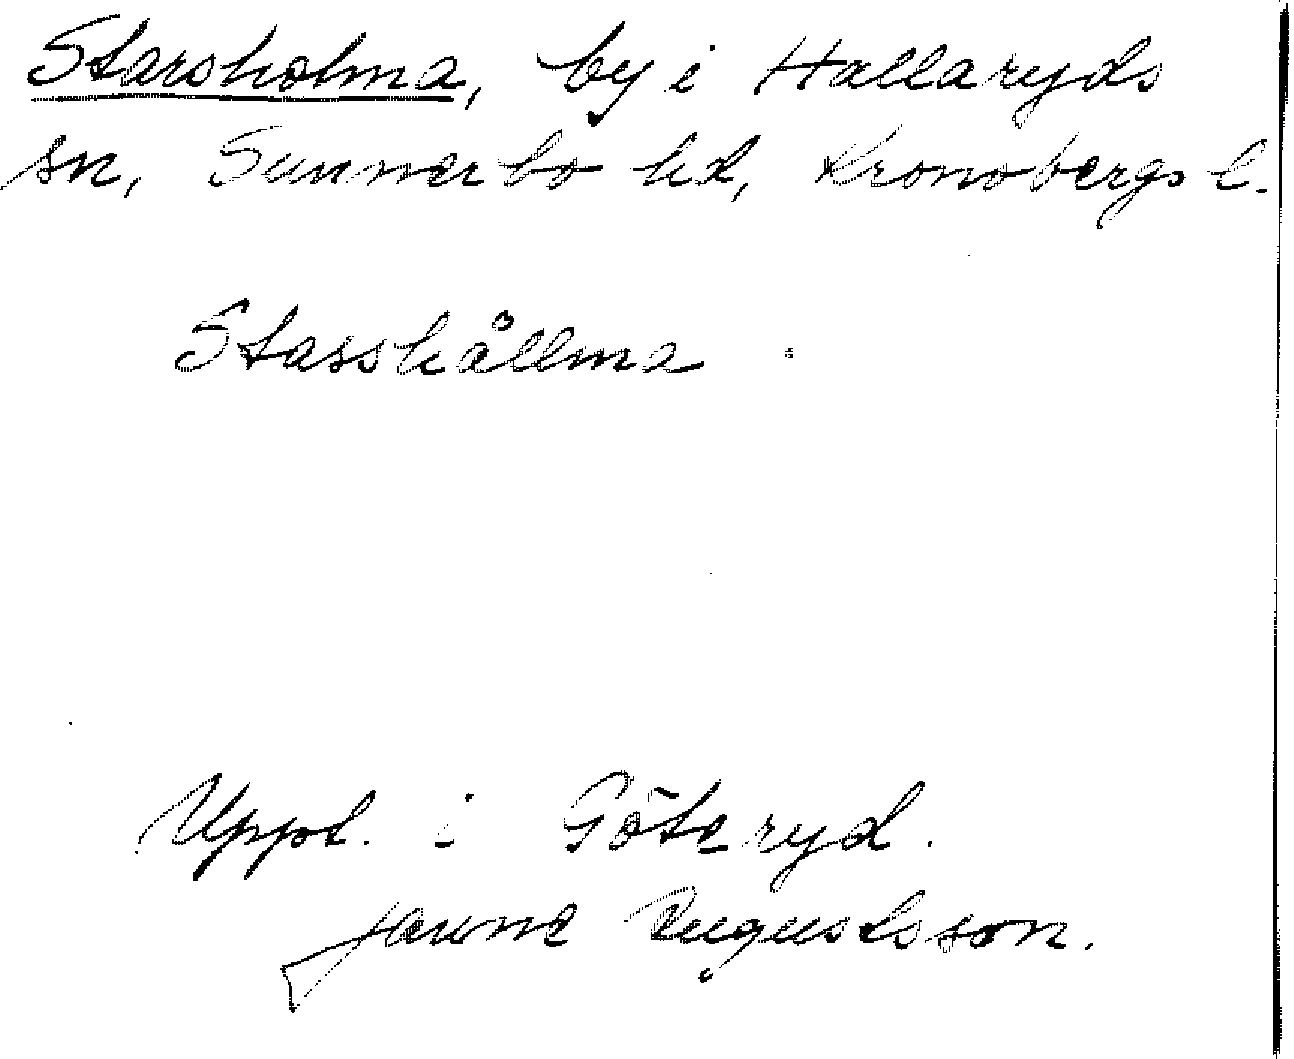 Starsholma, by i Hallaryds
sn, Sunnerbo hd, Kronobergs l.
Stasshållma
Uppt. i Göteryd.
Augustsson.